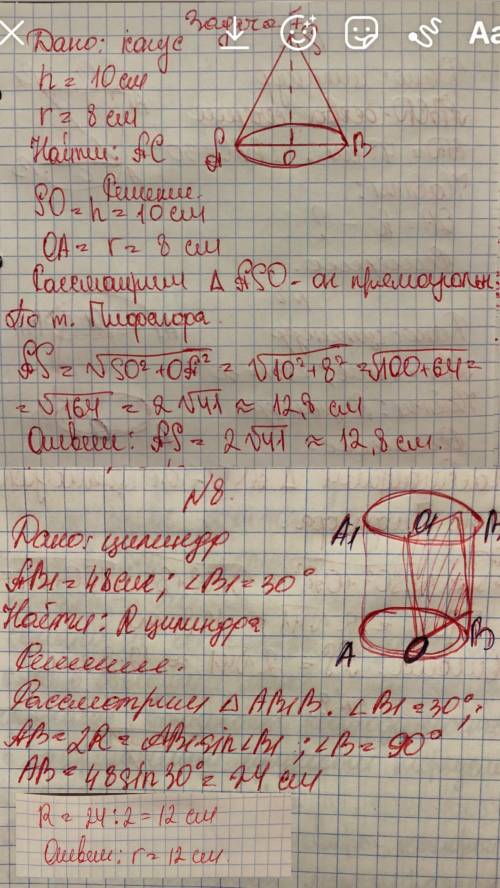 Задача
Дано: конус
h = 10 см
r = 8 см
Найти: AC
S
A
O
B
Решение.
SO = h = 10 см
OA = r = 8 см
Рассмотрим △ ASO - он прямоугольн:
По т. Пифагора
AS = √SO² + OA² = √10² + 8² = √100 + 64 =
= √164 = 2√41 ≈ 12,8 см
Ответ: AS = 2√41 ≈ 12,8 см.
Aa
№8.
Дано: цилиндр
AB1 = 48см; ∠B1 = 30°
Найти: R цилиндра
Решение.
A1
O1
B1
A
O
B
Рассмотрим △ AB1B. ∠B1 = 30°;
AB = 2R = AB1 sin∠B1; ∠B = 90°
AB = 48 sin 30° = 24 см
R = 24 : 2 = 12 см
Ответ: r = 12 см.